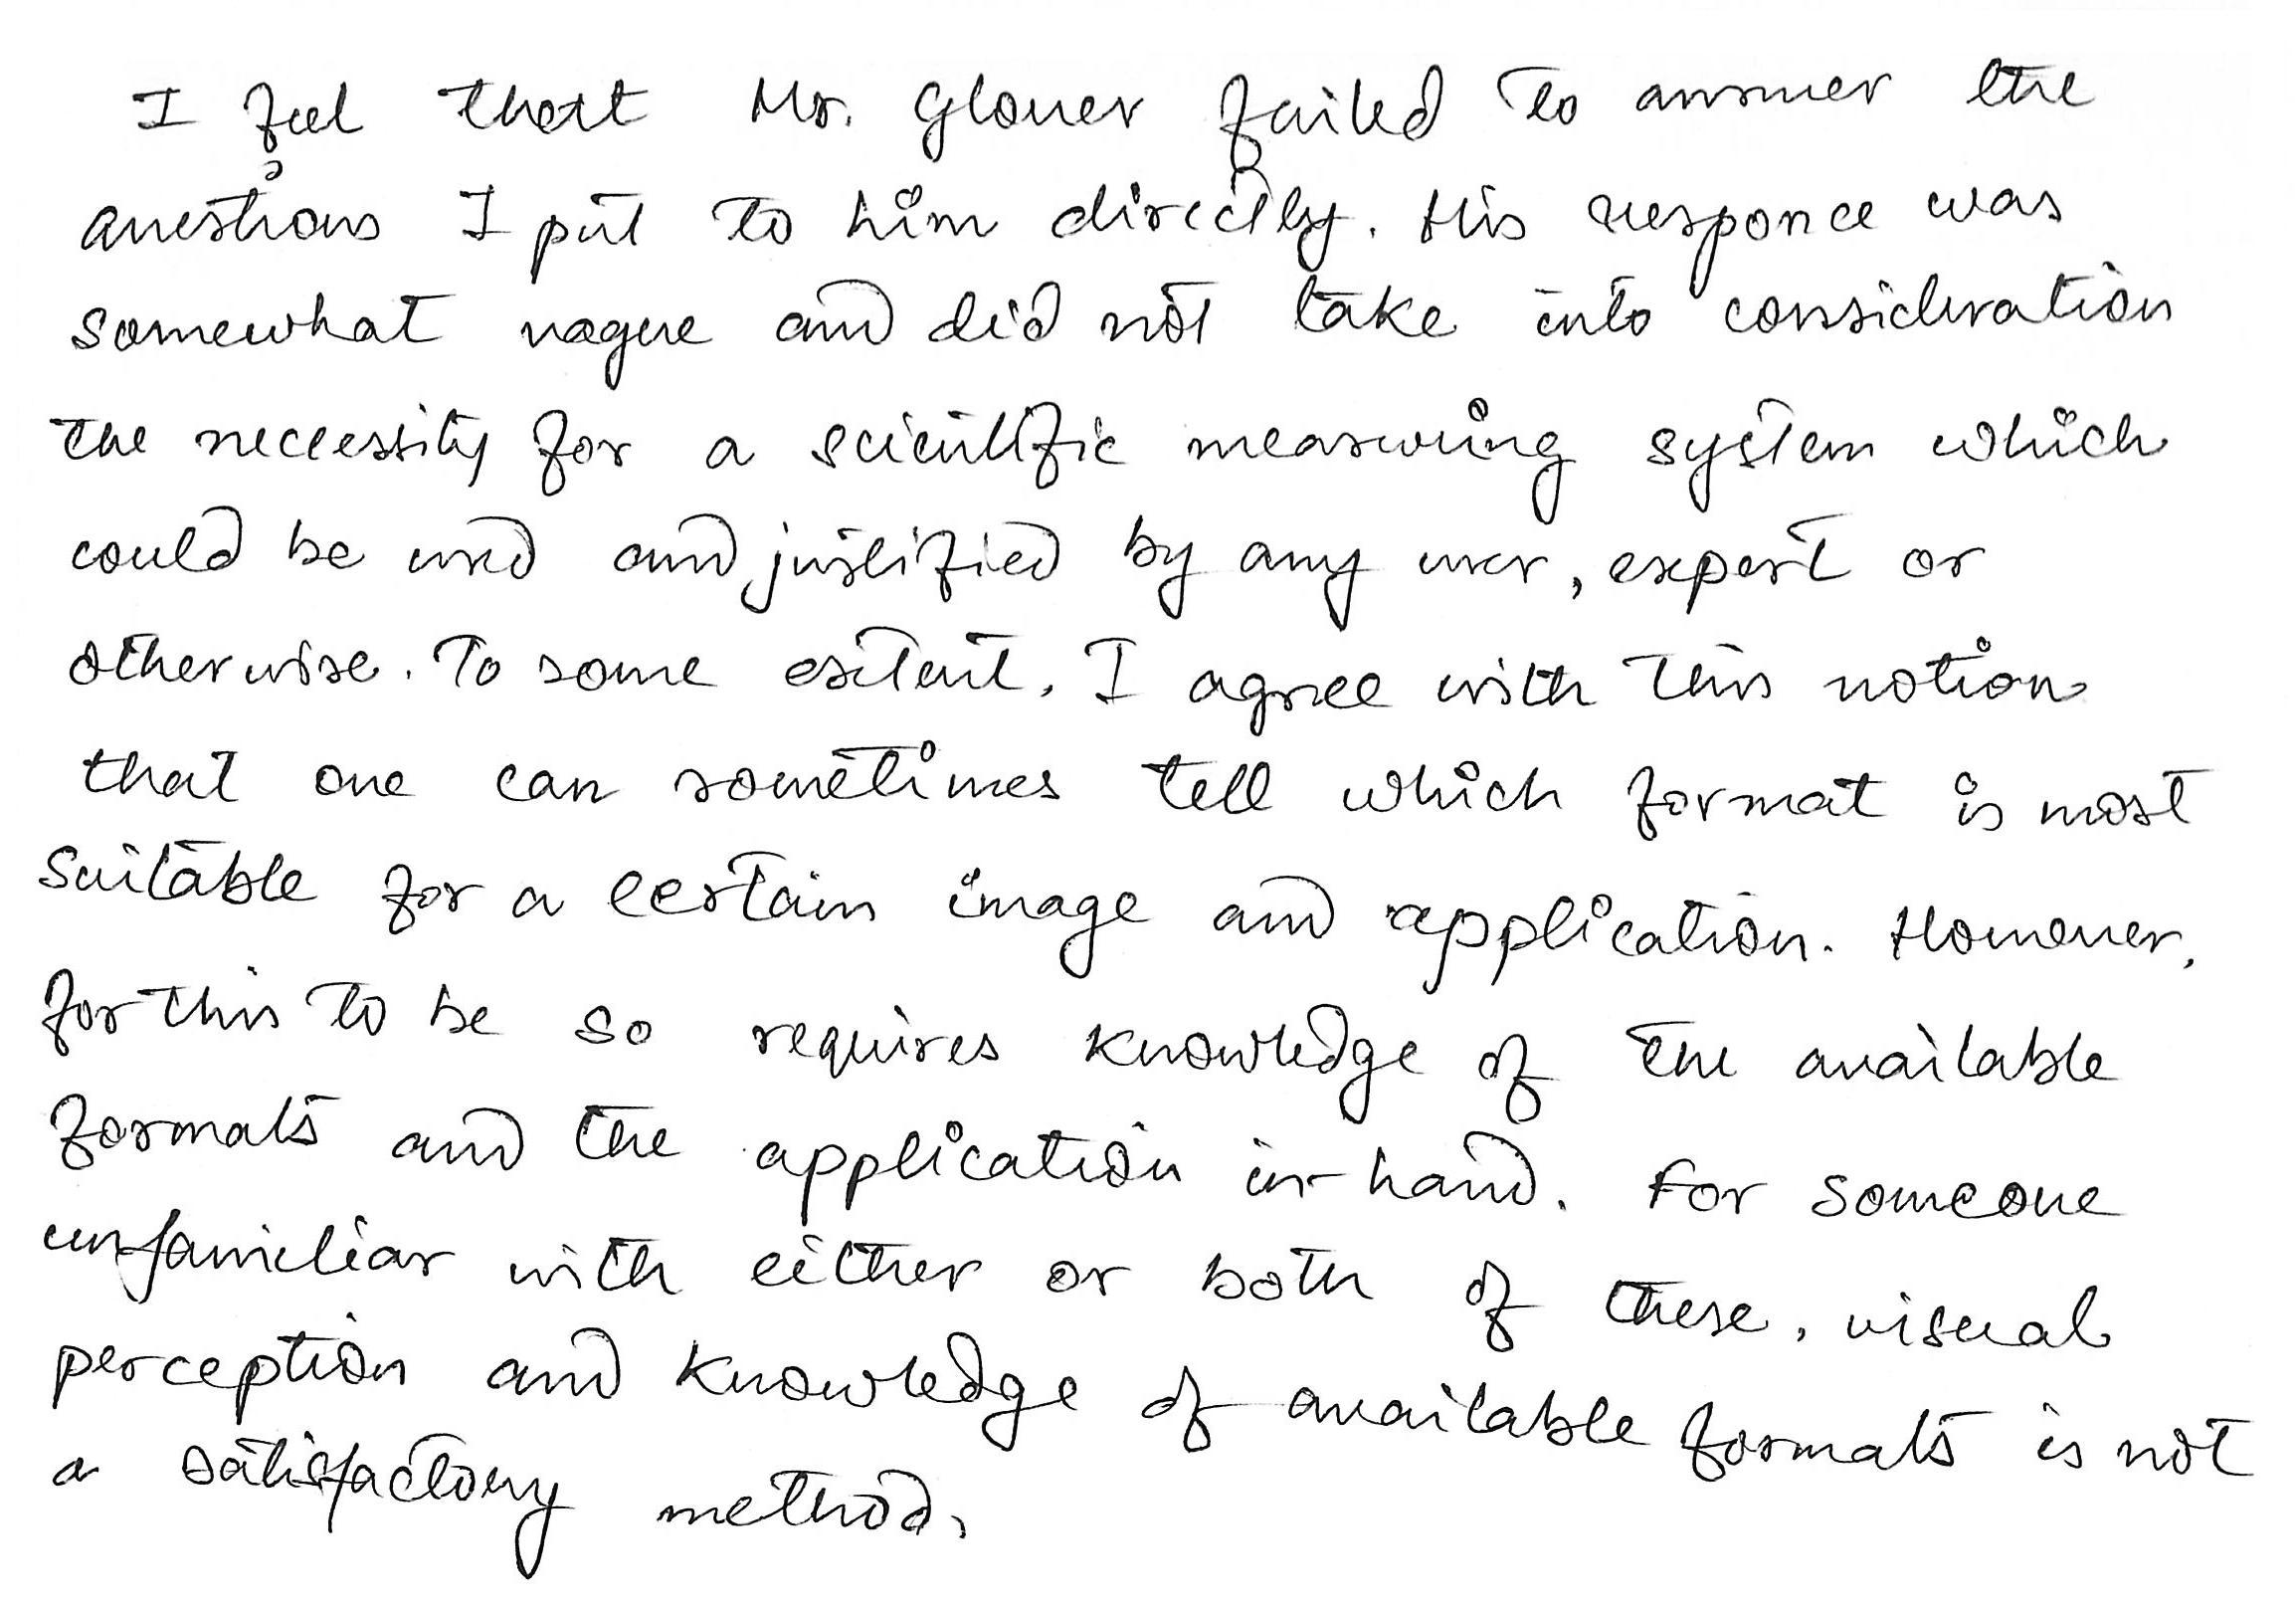 I feel that Mr. Glover failed to answer the
questions I put to him directly. His responce was
somewhat vague and did not take into consideration
the necessity for a scientific measuring system which
could be used and justified by any user, expert or
otherwise. To some extent, I agree with this notion
that one can sometimes tell which format is most
suitable for a certain image and application. However,
for this to be so requires knowledge of the available
formats and the application in-hand. For someone
unfamiliar with either or both of these, visual
perception and knowledge of available formats is not
a satisfactory method.